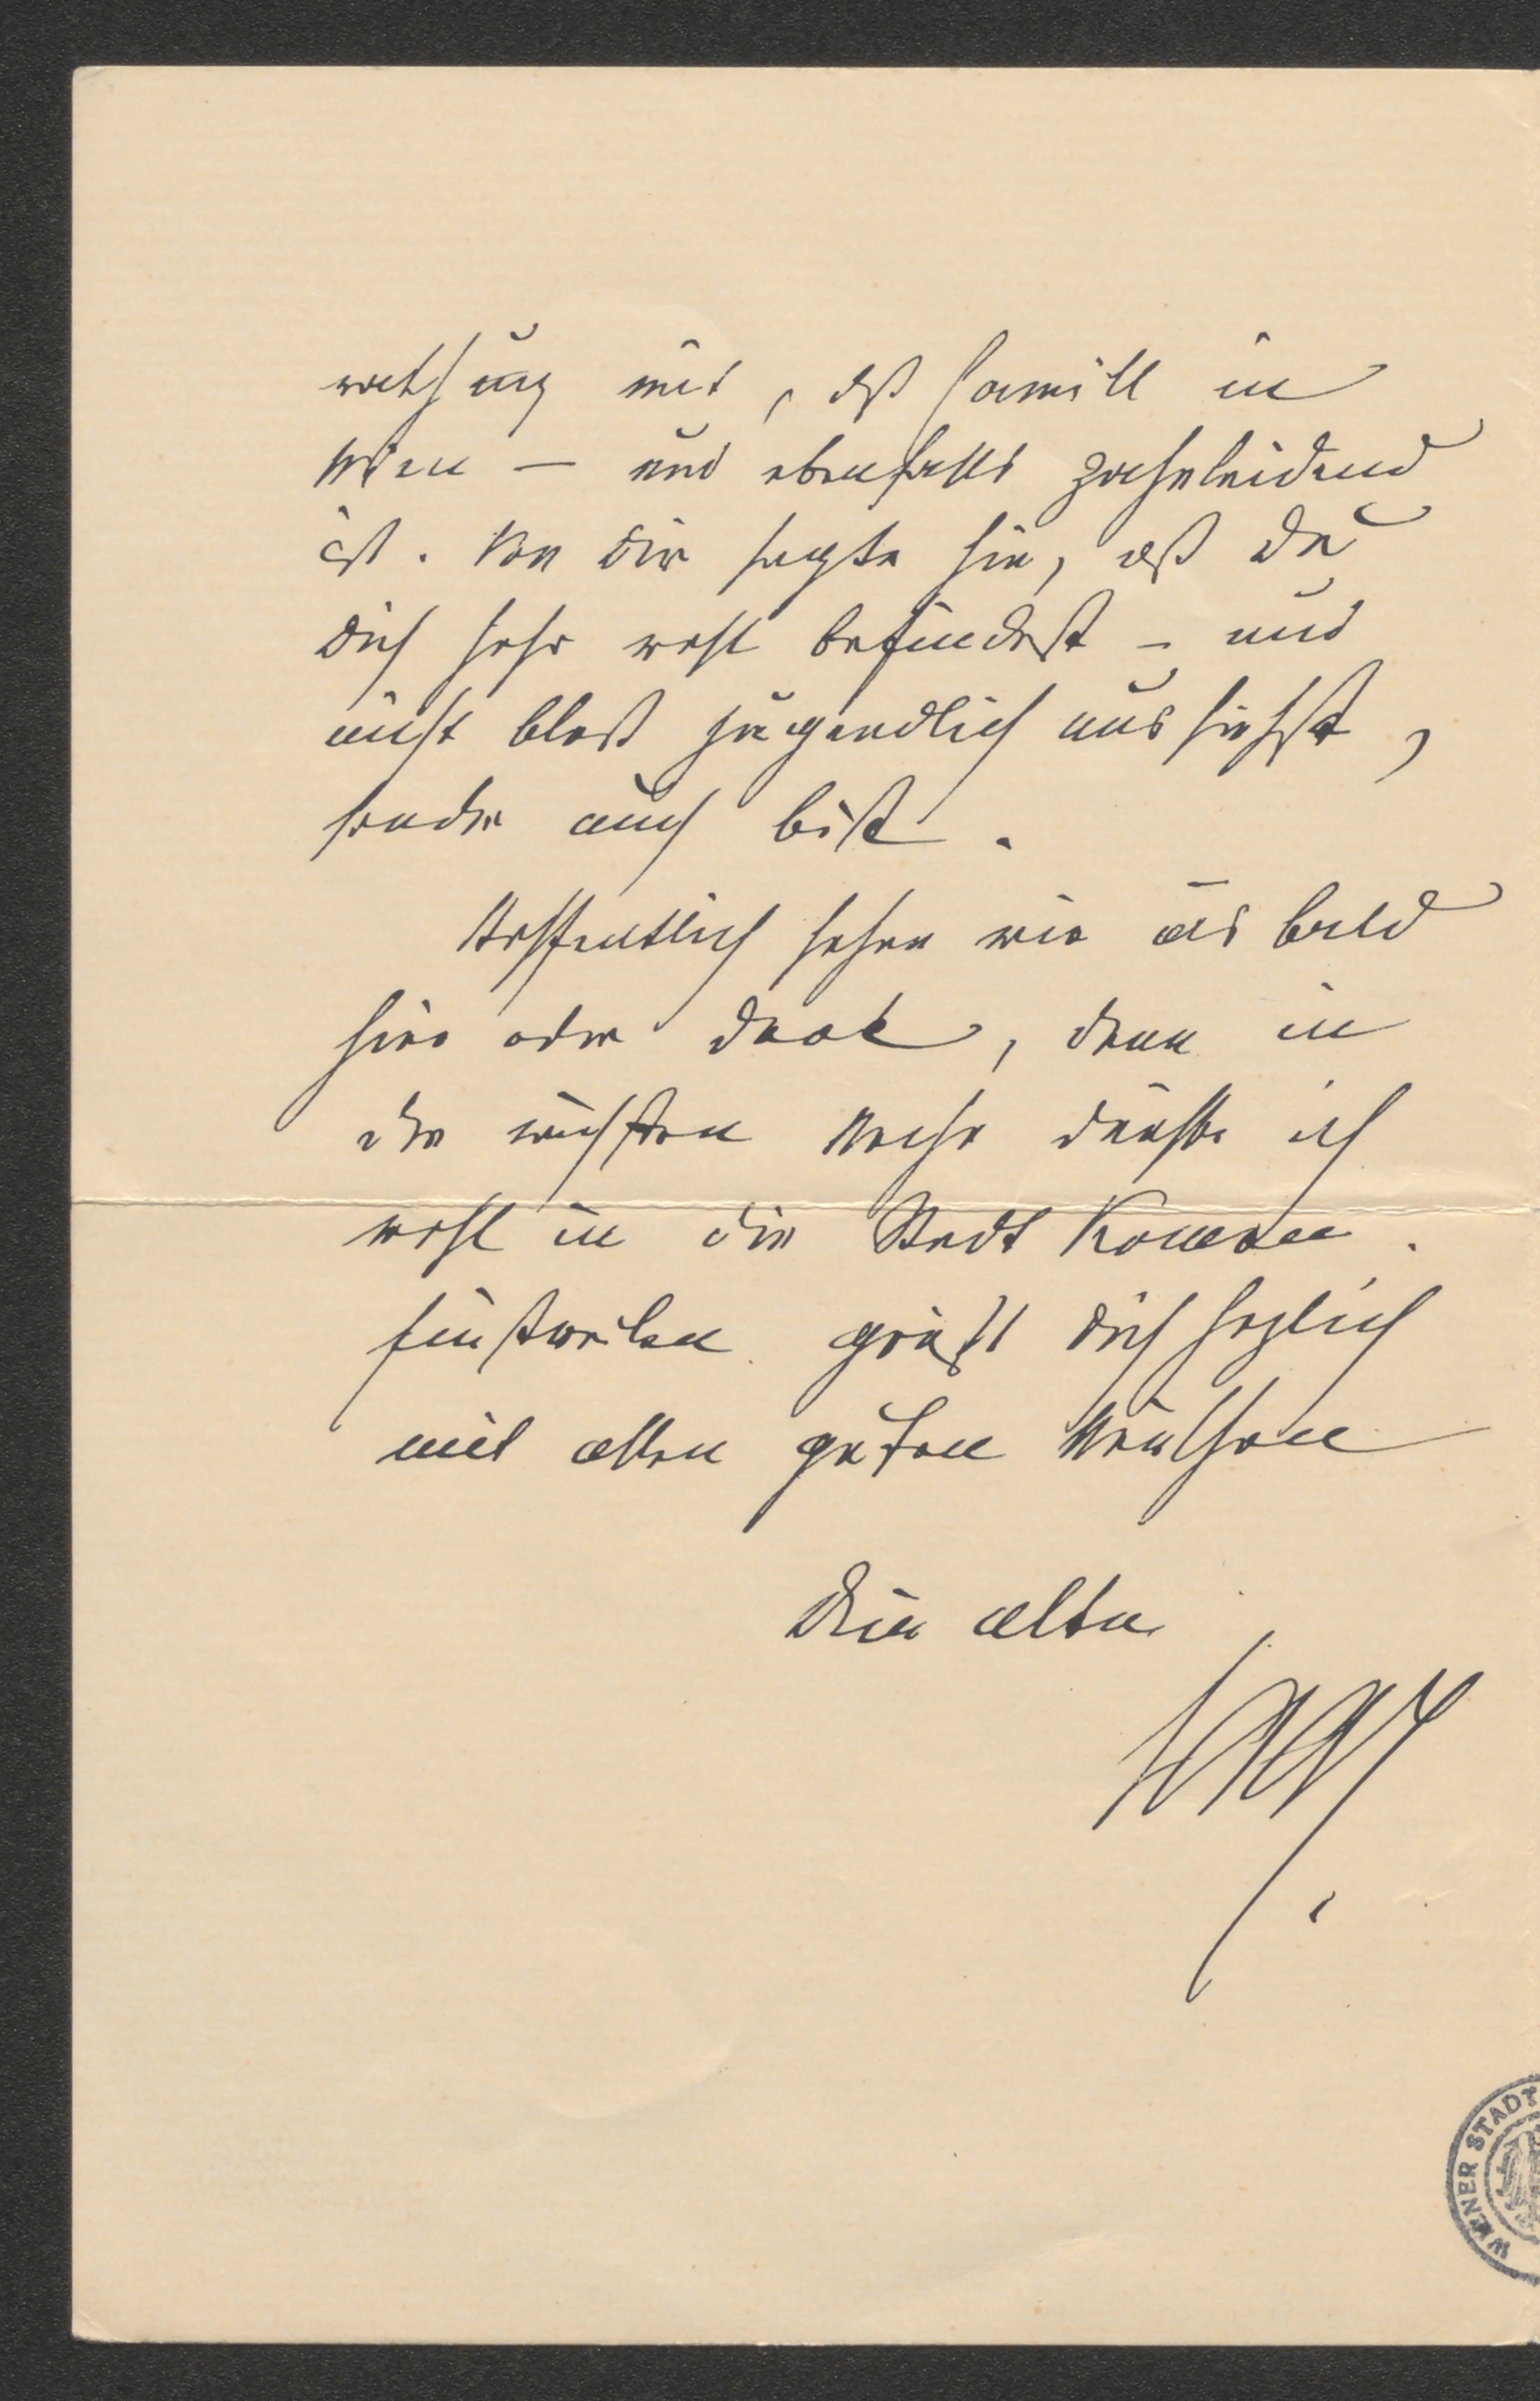 mit, dß Camill in
Wien — und ebenfalls zahnleidend
ist. Von Dir sagte sie, dß Du
Dich sehr wohl befindest – und
nicht bloß jugendlich aussiehst,
sondern auch bist.
Hoffentlich sehen wir uns bald
hier oder dort, denn in
der nächsten Woche dürfte ich
wohl in die Stadt kommen.
Einstweilen grüßt Dich herzlich
mit allen guten Wünschen
Dein alter
WIENER STADT